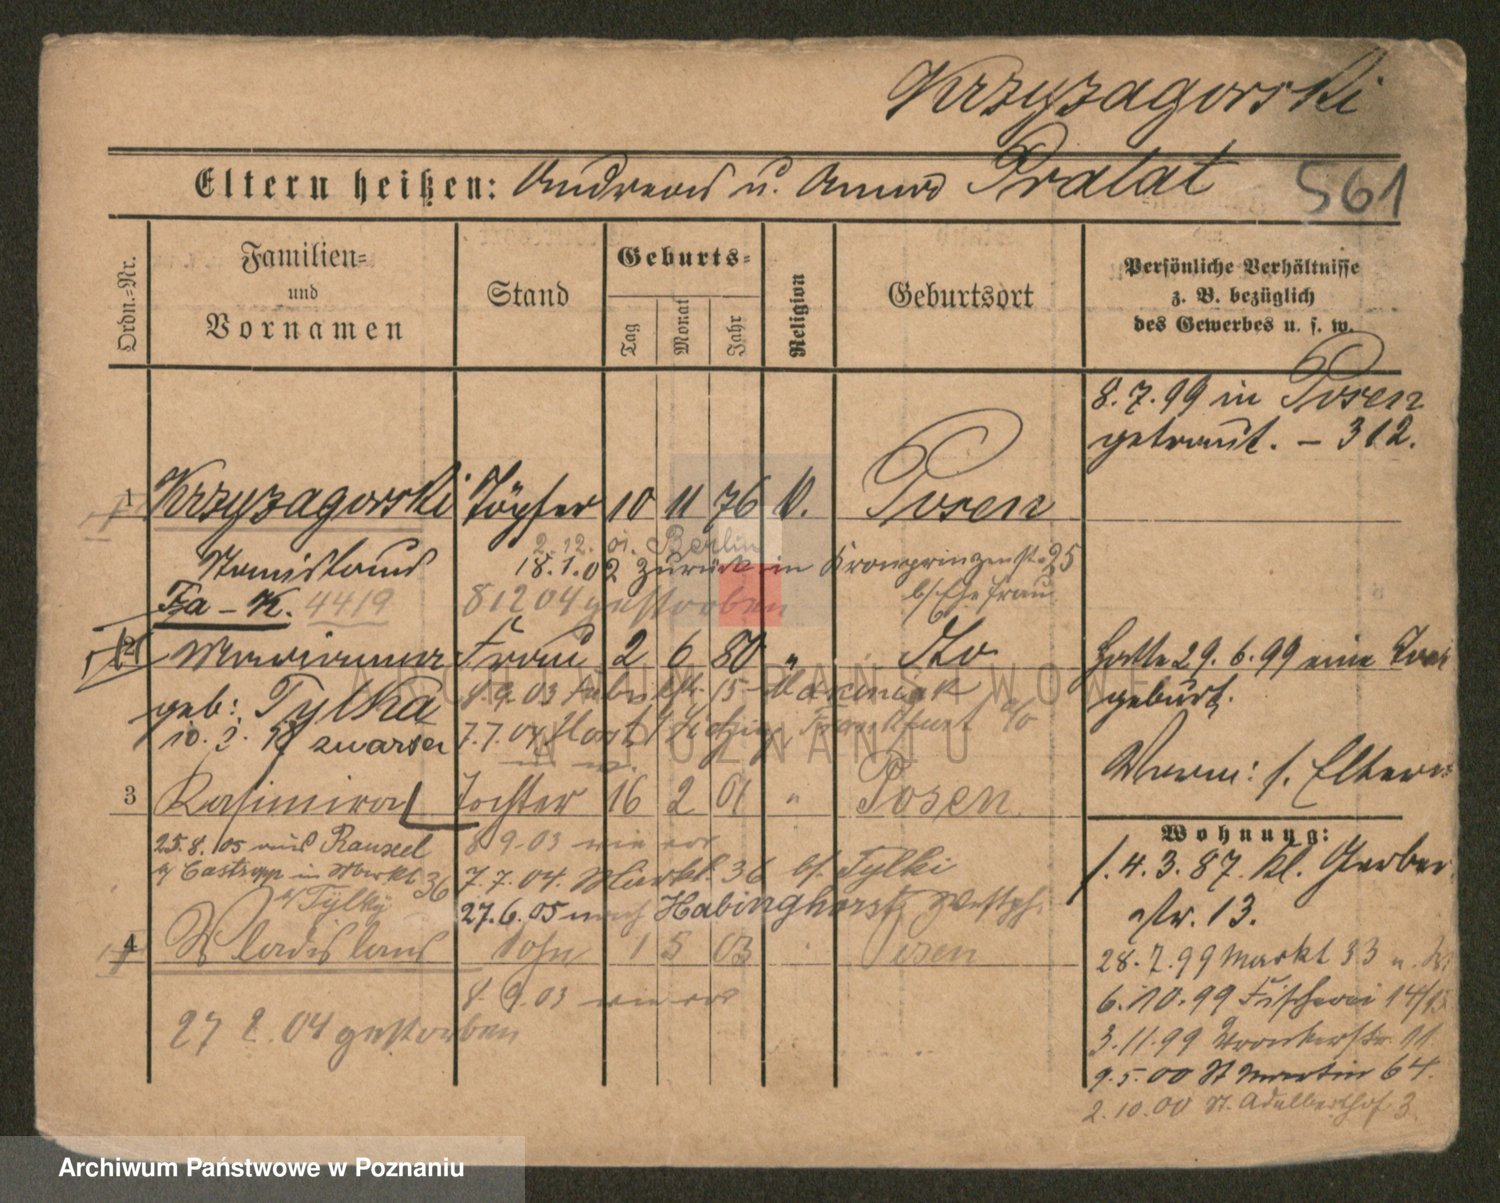 Krzyzagorski
Eltern heißen: Andreas u. Anna Pratat
561
Ordn.-Nr.
Familien-
und
Vornamen
Stand
Geburts-
Tag
Monat
Jahr
Religion
Geburtsort
Persönliche Verhältnisse
z. B. bezüglich
des Gewerbes u. s. w.
8.7.99 in Posen
getraut. – 312.
1 Krzyzagorski Töpfer 10 11 76 k. Posen
Stanislaus
2.12. 01. Berlin
18.1.02 zurück in Kronprinzenstr. 25
b/ Ehefrau
Fa – K. 4419
8 12 04 gestorben
2 Marianna Frau 2 6 80 " Do
geb: Tylka
8.9.03
7.7.04
Frankfurt a/o
Hatte 29.6.99 eine
geburt.
Verm: s. Eltern:
3 Kasimira Tochter 16 2 01 " Posen
25.8.05 aus Rauxel
in Markt 36
b/ Tylky
8 9.03 wie vor
7.7.04. Markt 36 bei Tylki
27.6.05 nach Habinghorst Westph.
4 Wladislaus Sohn 1 5 03 Posen
8.9.03 wie vor
27 2.04 gestorben
Wohnung:
1.4.3.87. kl. Gerber
str. 13.
28.7.99 Markt 33
6.10.99 Fischerei 14/15
3.11.99 Wronkerstr. 11
9.5.00 St Martin 64.
2.10.00 St. Adalberthof 3
ARCHIWUM PAŃSTWOWE
W POZNANIU
Archiwum Państwowe w Poznaniu